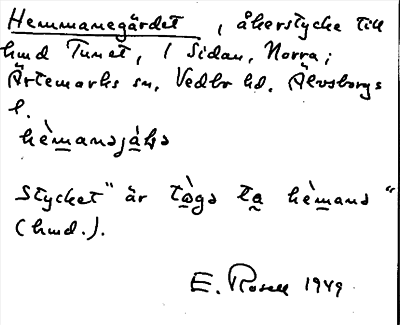 Hemmanegärdet, åkerstycke till
hmd Tunet, i Sidan, Norra;
Ärtemarks sn, Vedbo hd, Älvsborgs
l.
Stycket "är tògə ta hèmanə"
(hmd.).
E. Rosell 1949